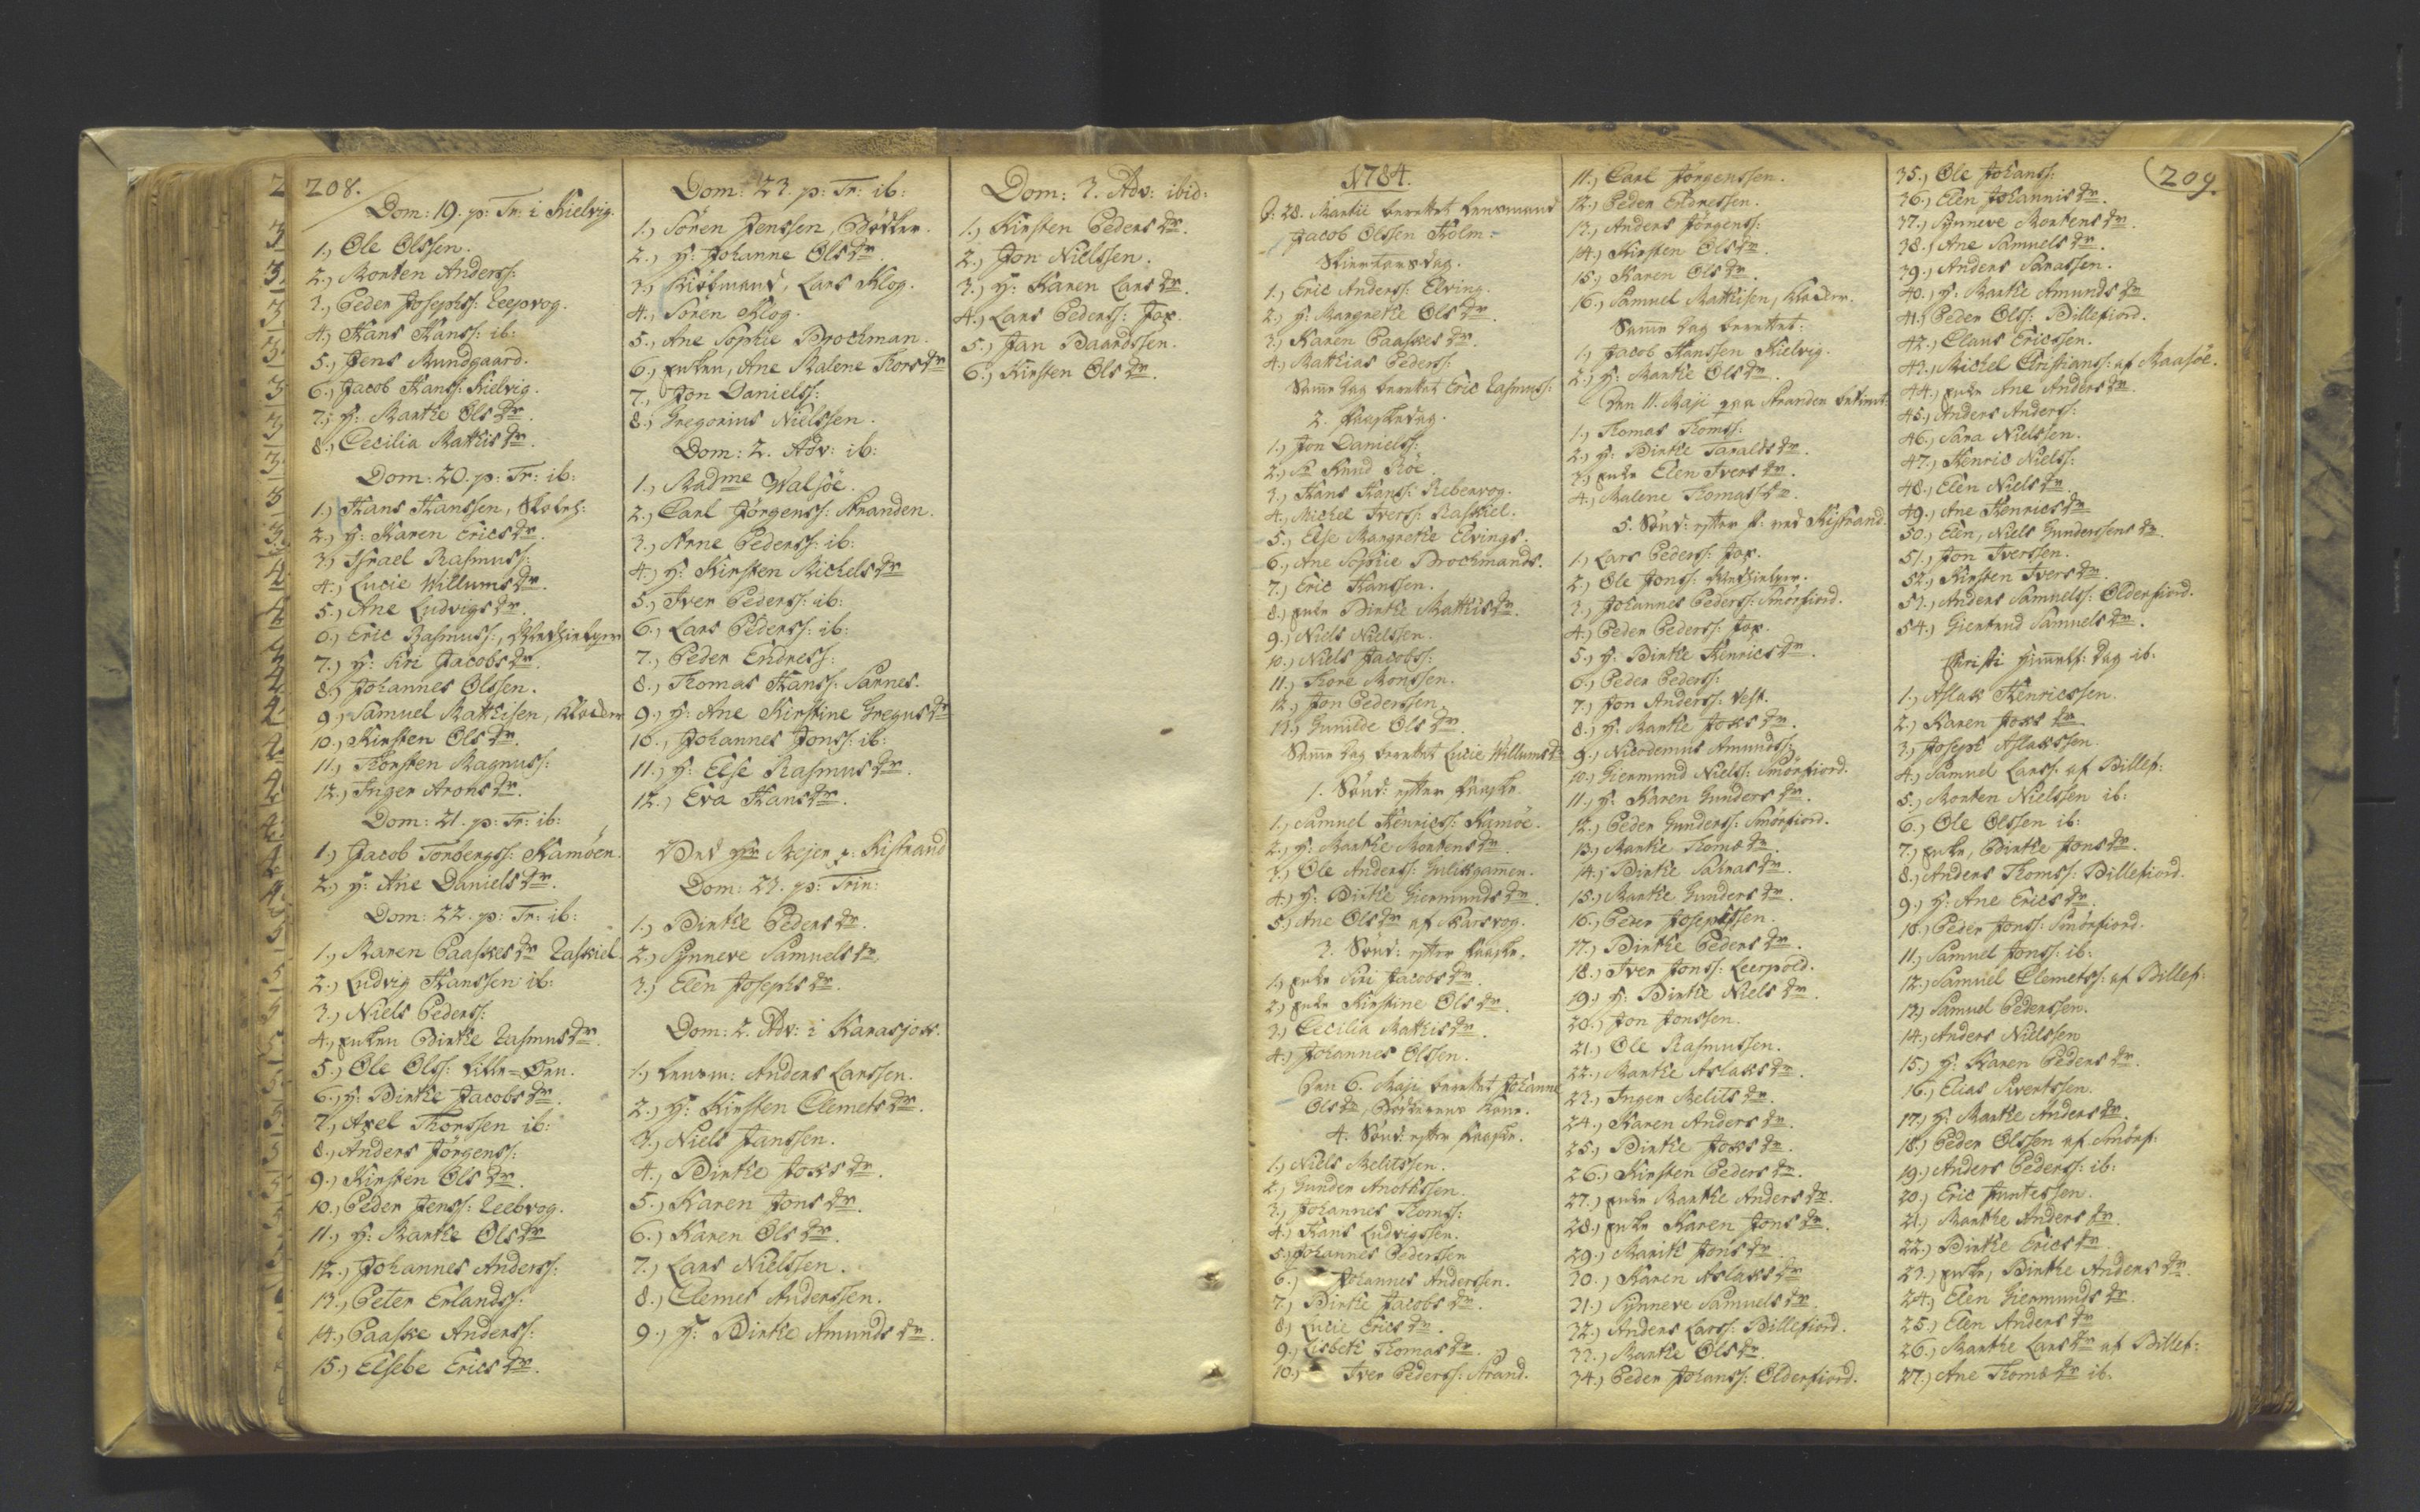 208.
Dom: 19. p: Tr: i Kielvig.
1.) Ole Olssen.
2.) Morten Anderss:
3.) Peder Josephss: Leepvog.
4.) Hans Hanss: ib:
5.) Jens Mundgaard.
6.) Jacob Hanss: Kielvig.
7.) H: Marthe Olsdr.
8.) Cecilia Mathisdr.
Dom: 20. p: Tr: ib:
1.) Hans Hanssen,
2.) H: Karen Ericsdr.
3.) Israel Rasmuss:
4.) Lucie Willumsdr.
5.) Ane Ludvigsdr.
6.) Eric Rasmuss:, Medhielper
7.) H: Siri Jacobsdr.
8.) Johannes Olssen.
9.) Samuel Mathisen, Klocker
10.) Kirsten Olsdr.
11.) Thorsten Magnuss:
12.) Inger Aronsdr.
Dom: 21. p: Tr: ib:
1.) Jacob Torbergss: Kamöen.
2.) H: Ane Danielsdr.
Dom: 22. p: Tr: ib:
1.) Maren Paaskesdr Laskiel.
2.) Ludvig Hanssen ib:
3.) Niels Pederss:
4.) Enken Birthe Rasmusdr.
5.) Ole Olss: Lille-Ørn.
6.) H: Birthe Jacobsdr.
7.) Axel Thorssen ib:
8.) Anders Jörgenss:
9.) Kirsten Olsdr.
10.) Peder Jenss: Leebvog.
11.) H: Marthe Olsdr
12.) Johannes Anderss:
13.) Peter Erlandss:
14.) Paaske Anderss:
15.) Elsebe Ericsdr.
Dom: 23. p: Tr: ib:
1.) Sören Jenssen, Bödker.
2.) H: Johanne Olsdr.
3.) Kiöbmand, Lars Klog.
4.) Sören Klog.
5.) Ane Sophie Brochman.
6.) Enken, Ane Malene Thorsdr
7.) Jon Danielss:
8.) Gregorius Nielssen.
Dom: 2. Adv: ib:
1.) Madme Walsöe.
2.) Carl Jörgenss: Stranden.
3.) Arne Pederss: ib:
4.) H: Kirsten Michelsdr
5.) Iver Pederss: ib:
6.) Lars Pederss: ib:
7.) Peder Endress:
8.) Thomas Hanss: Sarnes.
9.) H: Ane Kirstine Gregusdr
10.) Johannes Jonss: ib:
11.) H: Else Rasmusdr.
12.) Eva Hansdr.
Ved Hr Mejer p: Kistrand
Dom: 23. p: Trin:
1.) Birthe Pedersdr.
2.) Synneve Samuelsdr.
3.) Elen Josephsdr.
Dom: 2. Adv: i Karasjock.
1.) Lensm: Anders Larssen.
2.) H: Kirsten Clemetsdr.
3.) Niels Janssen.
4.) Birthe Joksdr.
5.) Karen Jonsdr.
6.) Karen Olsdr.
7.) Lars Nielssen.
8.) Clemet Anderssen.
9.) H: Birthe Amundsdr.
Dom: 3. Adv: ibid:
1.) Kirsten Pedersdr.
2.) Jon Nielssen.
3.) H: Karen Larsdr.
4.) Lars Pederss: Jox.
5.) Jan Baardssen.
6.) Kirsten Olsdr.
1784.
d: 28. Martii berettet Lensmand
Jacob Olssen Holm:
Skiertorsdag.
1.) Eric Anderss: Elving.
2.) H: Margrethe Olsdr.
3.) Karen Paaskesdr.
4.) Mathias Pederss:
Samme dag berettet Eric Rasmuss:
2. Paaskedag.
1.) Jon Danielss:
2.) Sr Knud Röe.
3.) Hans Hanss: Rebervog.
4.) Michel Iverss: Raskiel.
5.) Else Margrethe Elvings.
6.) Ane Sophie Brochmands.
7.) Eric Hanssen.
8.) Enke Birthe Mathisdr.
9.) Niels Nielssen.
10.) Niels Jacobss:
11.) Thore Monssen.
12.) Jon Pederssen.
13.) Gunilde Olsdr.
Samme dag berettet Lucie Willumsdr
1. Sönd: efter Paaske.
1.) Samuel Henricss: Kamöe.
2.) H: Marthe Mortensdr.
3.) Ole Anderss: Gulikgammen.
4.) H: Birthe Giermundsdr.
5.) Ane Olsdr af Barsvog.
3. Sönd: efter Paaske.
1.) Enke Siri Jacobsdr.
2.) Enke Kirstine Olsdr.
3.) Cecilia Mathisdr.
4.) Johannes Olssen.
Den 6. Maji berettet Johanne
Olsdr, Bödkerens Kone.
4. Sönd: efter Paaske.
1.) Niels Melitssen.
2.) Gunder Anothssen.
3.) Johannes Thomss:
4.) Hans Ludvigssen.
5.) Johannes Pederssen
6.) Johannes Anderssen.
7.) Birthe Jacobsdr.
8.) Lucie Ericsdr.
9.) Lisbeth Thomasdr.
10.) Iver Pederss: Strand.
11.) Carl Jörgenssen.
12.) Peder Endressen.
13.) Anders Jörgenss:
14.) Kirsten Olsdr.
15.) Karen Olsdr.
16.) Samuel Mathisen, Klocker.
Samme dag berettet:
1.) Jacob Hanssen Kielvig.
2.) H: Marthe Olsdr.
Den 11. Maji paa Stranden betient:
1.) Thomas Thomss:
2.) H: Birthe Taraldsdr.
3.) Enke Elen Iversdr.
4.) Malene Thomasdr.
5. Sönd: efter P: ved Kistrand.
1.) Lars Pederss: Jox.
2.) Ole Jonss: Medhielper.
3.) Johannes Pederss: Smörfiord.
4.) Peder Pederss: Jox.
5.) H: Birthe Henricsdr.
6.) Peder Pederss:
7.) Jon Anderss: Vest.
8.) H: Marthe Joksdr.
9.) Nicodemus Amundss:
10.) Giermund Nielss: Smörfiord.
11.) H: Karen Gundersdr.
12.) Peder Gunderss: Smörfiord.
13.) Marthe Thomædr.
14.) Birthe Sarasdr.
15.) Marthe Gundersdr.
16.) Peder Josephssen.
17.) Birthe Pedersdr.
18.) Iver Jonss: Leerpold.
19.) H: Birthe Nielsdr.
20.) Jon Jonssen.
21.) Ole Rasmussen.
22.) Marthe Aslaksdr.
23.) Inger Melitsdr.
24.) Karen Andersdr.
25.) Birthe Joksdr.
26.) Kirsten Pedersdr.
27.) Enke Marthe Andersdr.
28.) Enke Karen Jonsdr.
29.) Marith Jonsdr.
30.) Karen Aslaksdr
31.) Synneve Samuelsdr.
32.) Anders Larss: Billefiord.
33.) Marthe Olsdr.
34.) Peder Johanss: Olderfiord.
209.
35.) Ole Johanss:
36.) Elen Johannisdr.
37.) Synneve Mortensdr.
38.) Ane Samuelsdr.
39.) Anders Sarassen.
40.) H: Marthe Amundsdr
41.) Peder Olss: Billefiord.
42.) Claus Ericssen.
43.) Michel Christianss: af Maasöe.
44.) Enke Ane Andersdr.
45.) Anders Anderss:
46.) Sara Nielssen.
47.) Henric Nielss:
48.) Elen Nielsdr.
49.) Ane Henricsdr
50.) Elen, Niels Gunderssens dr.
51.) Jon Iverssen.
52.) Kirsten Iversdr.
53.) Anders Samuelss: Olderfiord.
54.) Giertrud Samuelsdr.
Christi Himmelf: dag ib:
1.) Aslak Henricssen.
2.) Karen Joksdr
3.) Joseph Aslakssen.
4.) Samuel Larss: af Billef:
5.) Morten Nielssen ib:
6.) Ole Olssen ib:
7.) Enke, Birthe Jonsdr.
8.) Anders Thomss: Billefiord.
9.) H: Ane Ericsdr.
10.) Peder Jonss: Smörfiord.
11.) Samuel Jonss: ib:
12.) Samuel Clemetss: af Billef:
13.) Samuel Pederssen.
14.) Anders Nielssen
15.) H: Karen Pedersdr.
16.) Elias Sivertssen.
17.) H: Marthe Andersdr.
18.) Peder Olssen af Smörf:
19.) Anders Pederss: ib:
20.) Eric
21.) Marthe Andersdr.
22.) Birthe Ericsdr
23.) Enke, Birthe Andersdr.
24.) Elen Giermundsdr.
25.) Elen Andersdr
26.) Marthe Larsdr af Billef:
27.) Ane Thomædr ib.